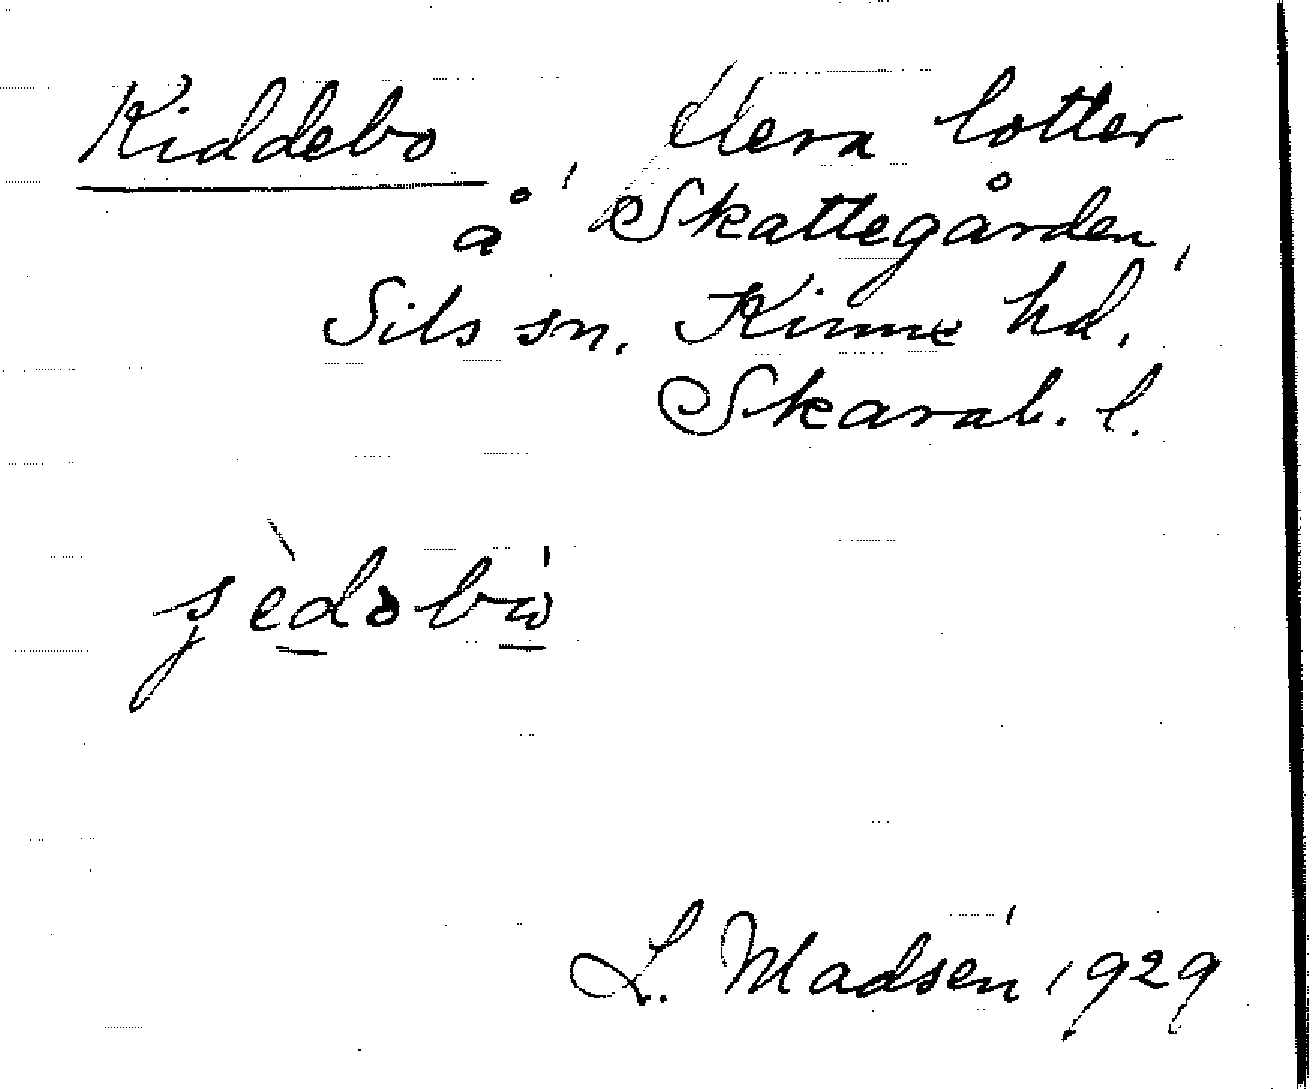 Kiddebo, flera lotter
å Skattegården,
Sils sn. Kinne hd.
Skarab. l.
L. Madsén 1929